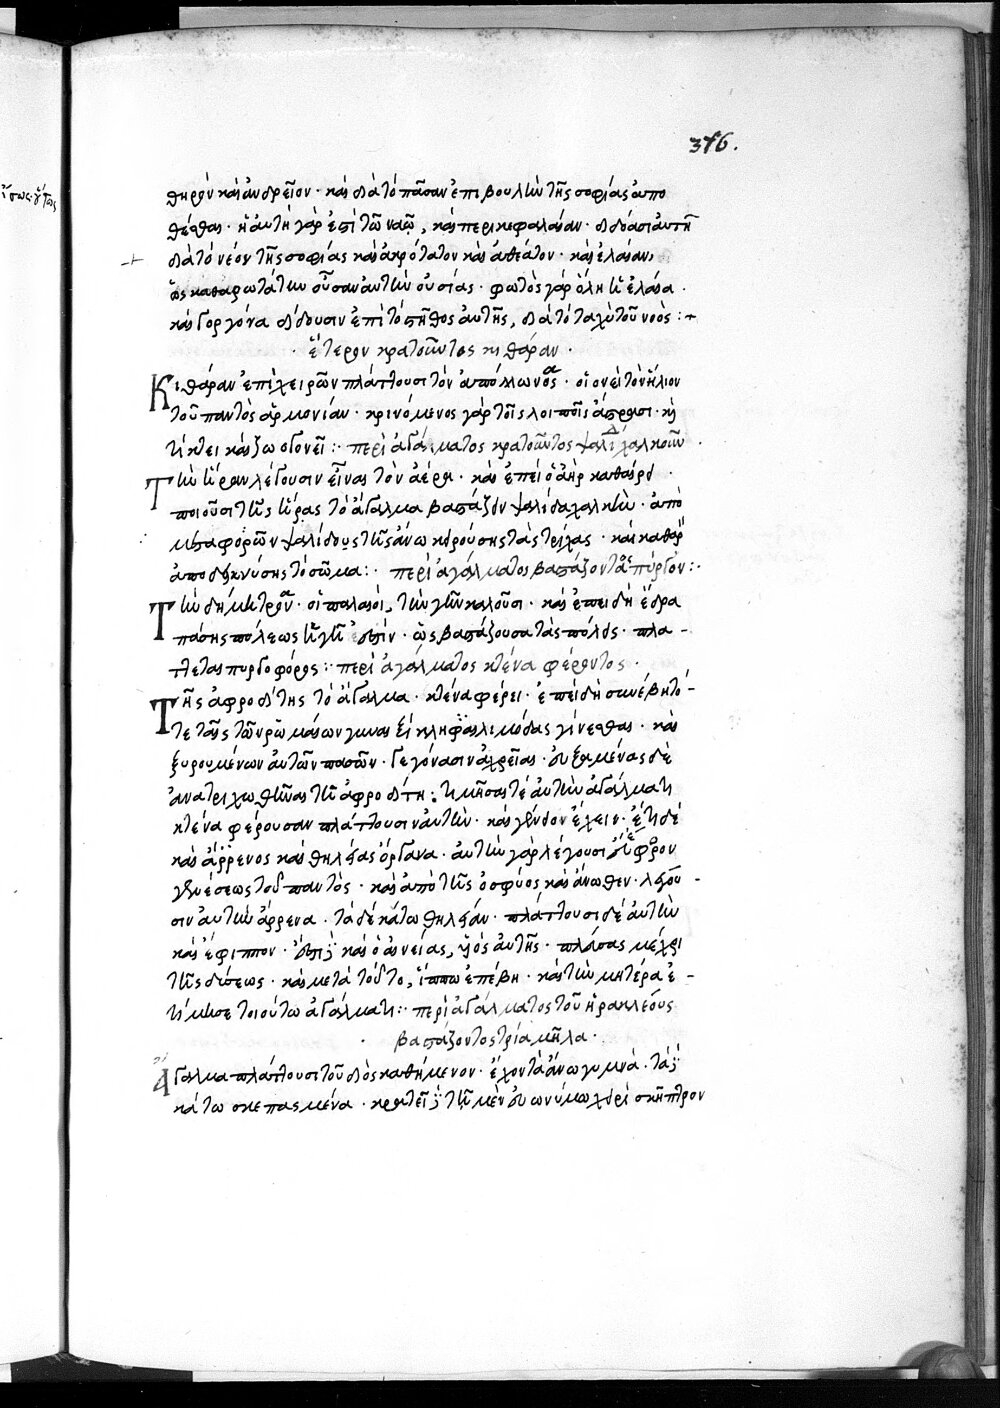 376.
ἴσως· γῆς
θηρὸν καὶ ἀνδρεῖον · καὶ διὰ τὸ πᾶσαν ἐπιβουλὴν τῆς σοφίας ἀπο
θέσθαι · ἡ αὐτὴ γάρ ἐστι τῷ ναῷ, καὶ περικεφαλαίαν · διδόασι αὐτῇ
διὰ τὸ νέον τῆς σοφίας καὶ ἀκρότατον καὶ ἀθέατον · καὶ ἐλαίαν,
ὡς καθαρωτάτην οὖσαν αὐτὴν οὐσίας · φωτὸς γὰρ ὕλη ἡ ἐλαία ·
καὶ γοργόνα διδοῦσιν ἐπὶ τὸ στῆθος αὐτῆς, διὰ τὸ ταχὺ τοῦ νοός :+
· ἕτερον κρατοῦντος κιθάραν ·
Κιθάραν ἐπὶ χειρῶν πλάττουσι τὸν ἀπόλλωνος · οἱονεὶ τὸν ἥλιον
τοῦ παντὸς ἁρμονίαν · κρινόμενος γὰρ τοῖς λοιποῖς ἄστρασι · κι
τίκτει καὶ ζωογονεῖ :· περὶ ἀγάλματος κρατοῦντος ψαλίδα χαλκοῦν ·
Τὴν ἥραν λέγουσιν εἶναι τὸν ἀέρα · καὶ ἐπεὶ ὁ ἀὴρ καθαίρει ·
ποιοῦσι τῆς ἥρας τὸ ἄγαλμα βαστάζον ψαλίδα χαλκῆν · ἀπὸ
μεταφορῶν ψαλίδους τῆς ἄνω κειρούσης τὰς τρίχας · καὶ καθαρ
ἀποδεικνύσης τὸ σῶμα :· περὶ ἀγάλματος βαστάζοντος πύργον :·
Τὴν δήμητραν · οἱ παλαιοί, τὴν γῆν καλοῦσι · καὶ ἐπειδὴ ἕδρα
πάσης πόλεως ἡ γῆ ἐστιν · ὡς βαστάζουσα τὰς πόλεις · πλα-
ττεται πυργοφόρος :· περὶ ἀγάλματος κτένα φέροντος ·
Τῆς ἀφροδίτης τὸ ἄγαλμα · κτένα φέρει · ἐπειδὴ συνέβη τό-
τε ταῖς τῶν ῥωμαίων γυναιξὶ κνηφὰς λιμώδας γίνεσθαι · καὶ
ξυρουμένων αὐτῶν πασῶν · γεγόνασιν ἀχρεῖαι · εὐξαμένας δὲ
ἀνατριχωθῆναι τῇ ἀφροδίτῃ : τιμῆσαί τε αὐτὴν ἀγάλματι
κτένα φέρουσαν πλάττουσιν αὐτὴν · καὶ γένειον ἔχειν · ἔτι δὲ
καὶ ἄρρενος καὶ θηλείας ὄργανα · αὐτὴν γὰρ λέγουσι ἔφορον
γενέσεως τοῦ παντός · καὶ ἀπὸ τῆς ὀσφύος καὶ ἄνωθεν · λέγου-
σιν αὐτὴν ἄρρενα · τὰ δὲ κάτω θηλείαν · πλάττουσι δὲ αὐτὴν
καὶ ἔφιππον · ὅτι καὶ ὁ αἰνείας, υἱὸς αὐτῆς · πλεύσας μέχρι
τῆς δύσεως · καὶ μετὰ τοῦτο, ἵππῳ ἐπέβη · καὶ τὴν μητέρα ἐ-
τίμησε τοιούτῳ ἀγάλματι :· περὶ ἀγάλματος τοῦ ἡρακλέους
βαστάζοντος τρία μῆλα ·
Ἄγαλμα πλάττουσι τοῦ διὸς καθήμενον · ἔχοντα ἄνω γυμνά · τὰ
κάτω σκεπασμένα · κρατεῖ τῇ μὲν εὐωνύμῳ χειρὶ σκῆπτρον